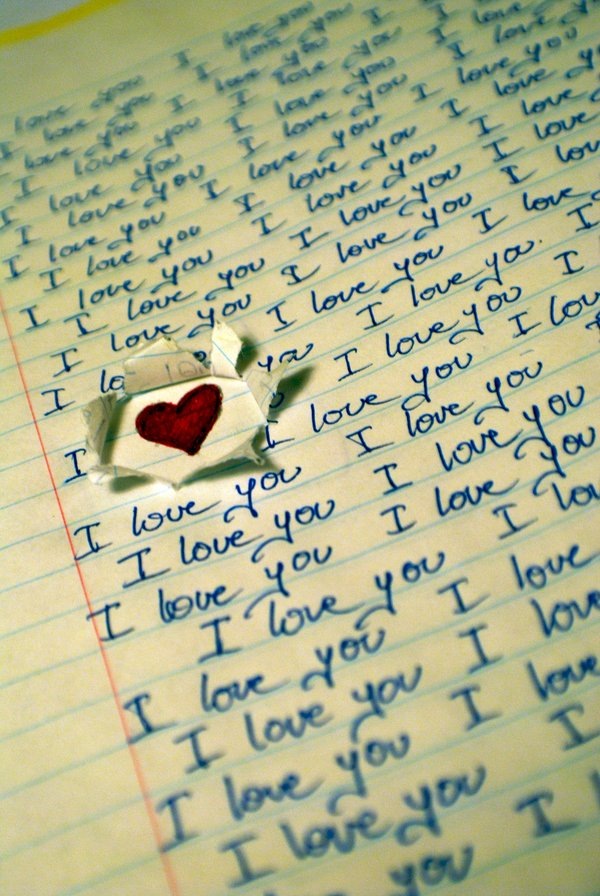 love you I love you I
I love you I love you I
love you I love you I love
I love you I love you I love you
I love you I love you I love you
I love you I love you I love you
I love you I love you I love
I love you I love you I love
I love you I love you I love
I love you I love you I lov
I love you I love you I love
I lo you I love you I
I I love you I
I love you I lov
I love you I love you I
I love you I love you
I love you I love you
I love you I lov
I love you I love
I love you I love
I love you I love
I love you I
you I